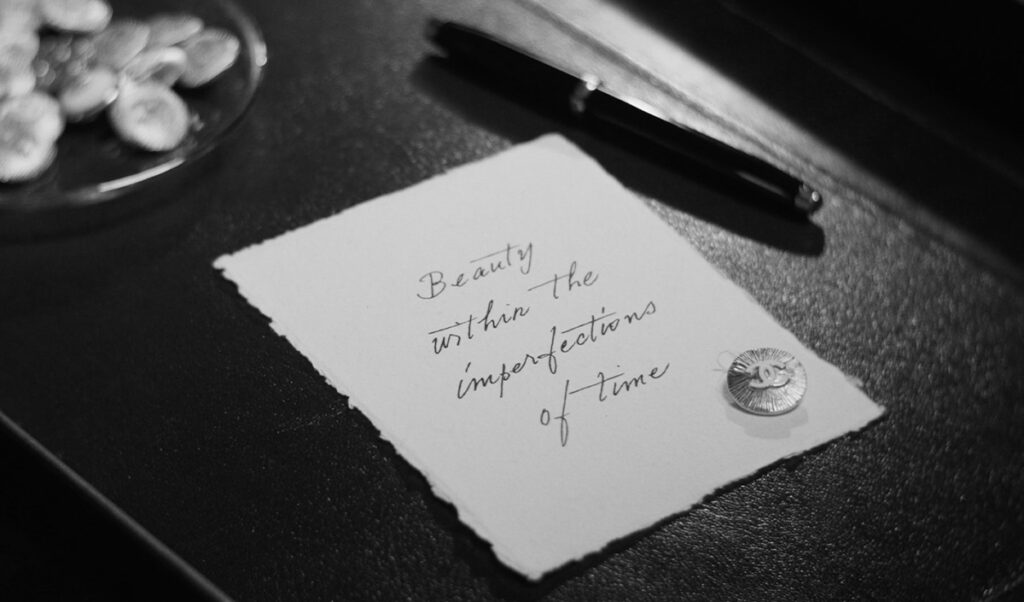 Beauty
within the
imperfections
of time